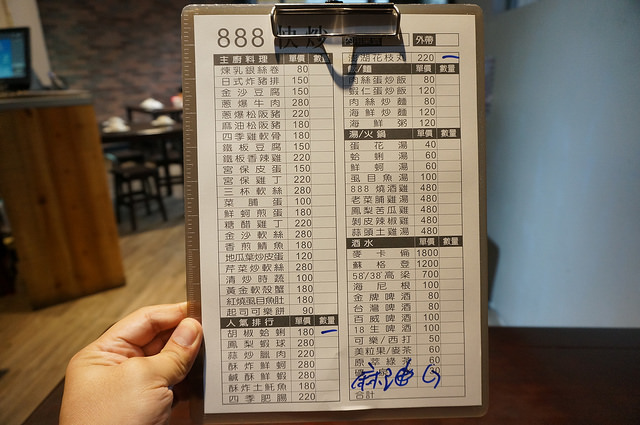 888 快炒
外帶
主廚料理 單價 數
煉乳銀絲卷 80
日式炸豬排 150
金沙豆腐 150
蔥爆牛肉 280
蔥爆松阪豬 220
麻油松阪豬 180
四季雞軟骨 180
鐵板豆腐 150
鐵板香辣雞 220
宮保皮蛋 150
宮保雞丁 220
三杯軟絲 280
菜脯蛋 100
鮮蚵煎蛋 180
糖醋雞丁 220
金沙軟絲 280
香煎鯖魚 180
地瓜葉炒皮蛋 120
芹菜炒軟絲 280
清炒時蔬 100
黃金軟殼蟹 180
紅燒虱目魚肚 180
起司可樂餅 90
人氣排行 單價 數量
胡椒蛤蜊 180
鳳梨蝦球 280
蒜炒臘肉 220
酥炸鮮蚵 280
鹹酥鮮蝦 280
酥炸土魠魚 180
四季肥腸 220
澎湖花枝丸 220
飯/麵 單價 數量
肉絲蛋炒飯 80
蝦仁蛋炒飯 120
肉絲炒麵 80
海鮮炒麵 120
海鮮粥 120
湯/火鍋 單價 數量
蛋花湯 40
蛤蜊湯 60
鮮蚵湯 60
虱目魚湯 100
888燒酒雞 480
老菜脯雞湯 480
鳳梨苦瓜雞 480
剝皮辣椒雞 480
蒜頭土雞湯 480
酒水 單價 數量
麥卡倫 1800
蘇格登 1200
58/38高粱 700
海尼根 100
金牌啤酒 80
台灣啤酒 80
百威啤酒 100
18生啤酒 100
可樂/西打 50
美粒果/麥茶 60
原萃綠茶 60
麻油
合計